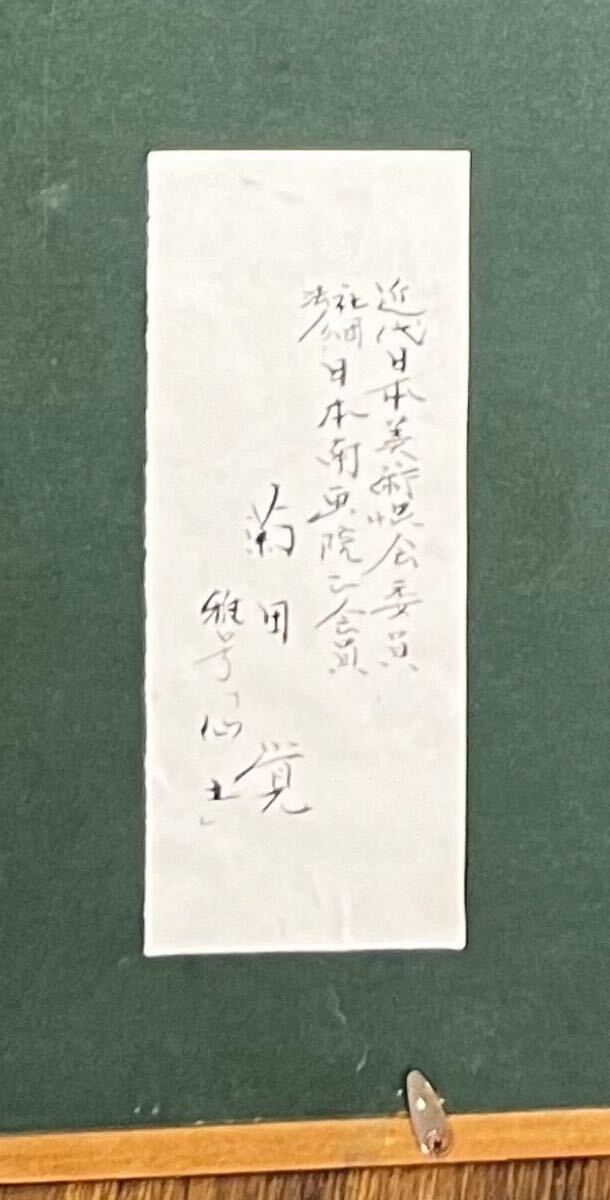 近代日本美術協会委員
社団法人 日本南画院正会員
菊田 覚
雅号「仙土」